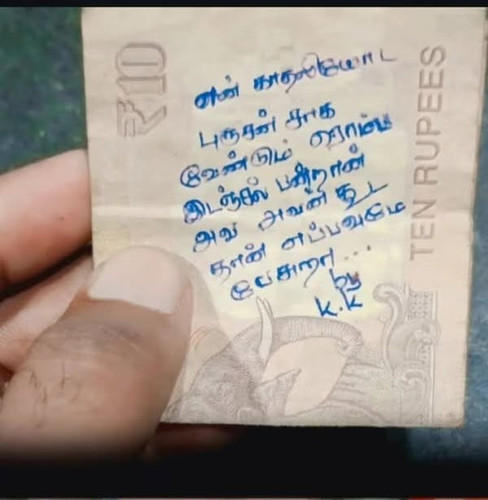 ₹10
என் காதலியோட
புருசன் சாக
வேண்டும் ரொம்ப
இடஞ்சல் பண்றான்
அவ அவன் கூட
தான் எப்பவுமே
பேசுறா...
by
K.K
TEN RUPEES